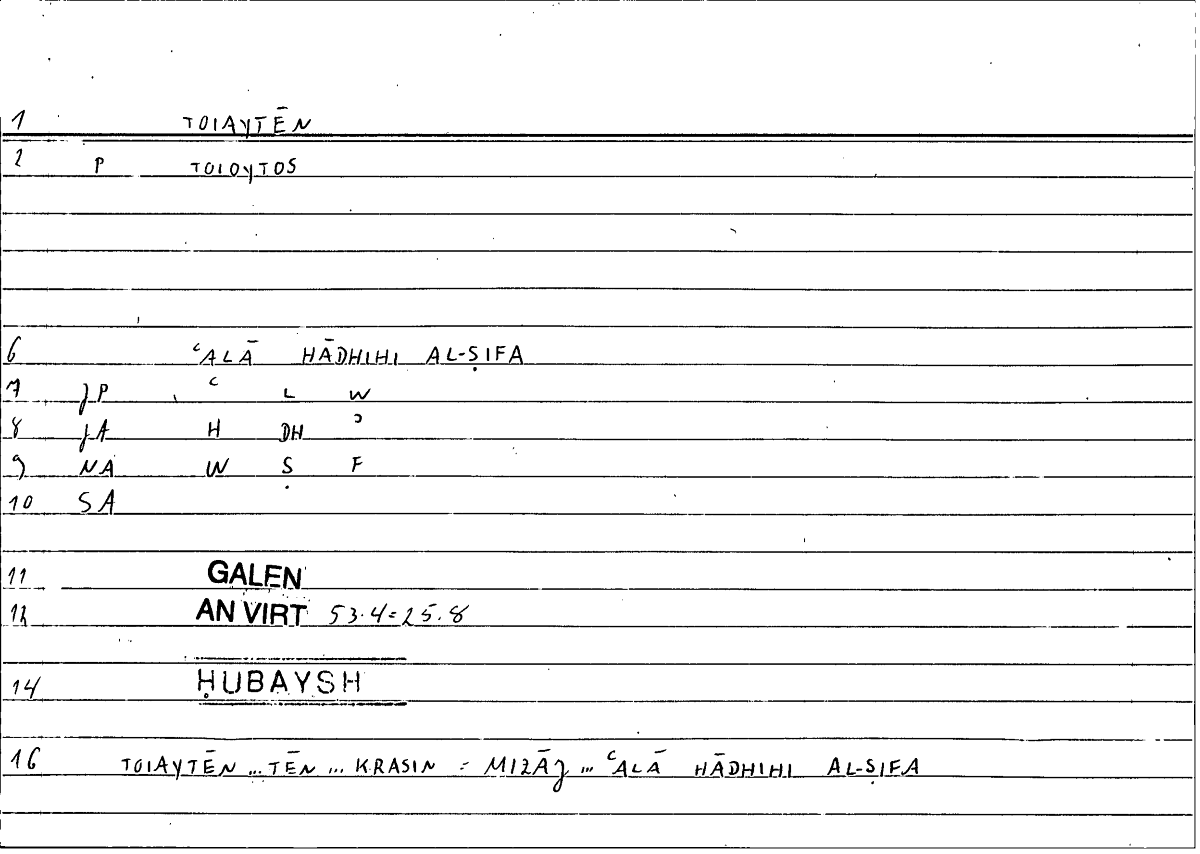 1 TOIAYTĒN
2 P TOIOYTOS
6 ʿALĀ HĀDHIHI AL-ṢIFA
7 JP ʿ L W
8 JA H DH ʾ
9 NA W Ṣ F
10 SA
11 GALEN
12 AN VIRT 53.4=25.8
14 ḤUBAYSH
16 TOIAYTĒN ... TĒN ... KRASIN = MIZĀJ ... ʿALĀ HĀDHIHI AL-ṢIFA